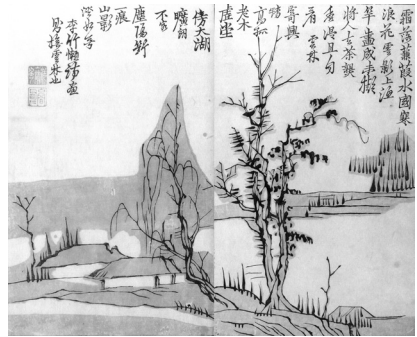 霜落蒹葭水國寒
浪花雲影上漁
竿畫成未擬
將人去茶熟
香溫且自
看 雲林
寄興
高孤
老木
虛堂
傍大湖
曠朗
不容
塵隔斷
一痕
山影
淡如無
李竹嬾詩畫